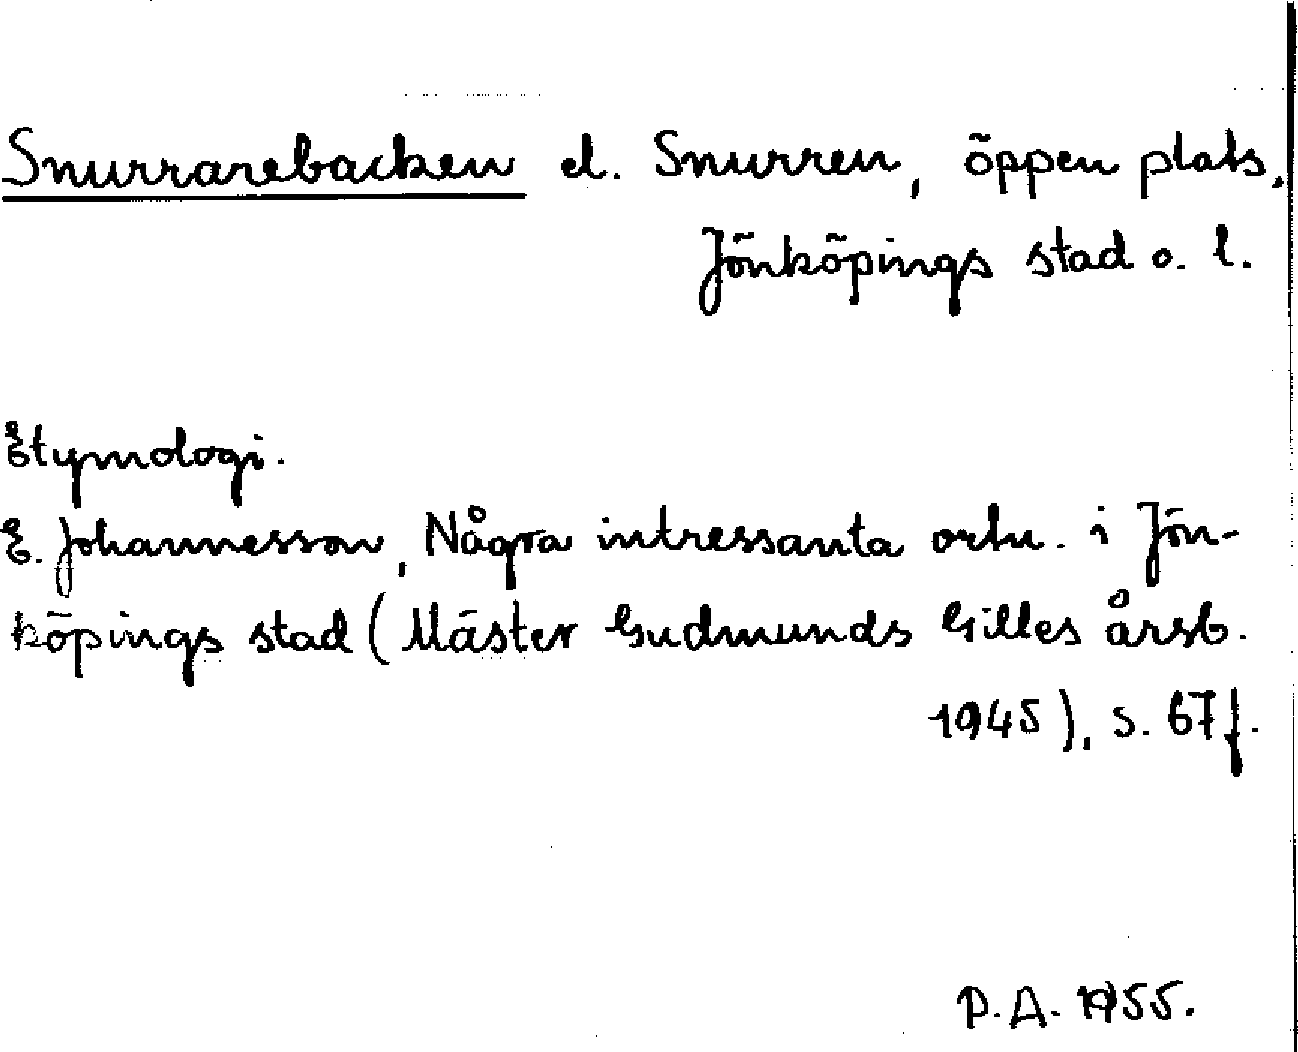 Snurrarebacken el. Snurren, öppen plats,
Jönköpings stad o. l.
Etymologi.
E. Johannesson, Några intressanta ortn. i Jön-
köpings stad (Mäster Gudmunds Gilles årsb.
1945), s. 67 f.
P. A. 1955.